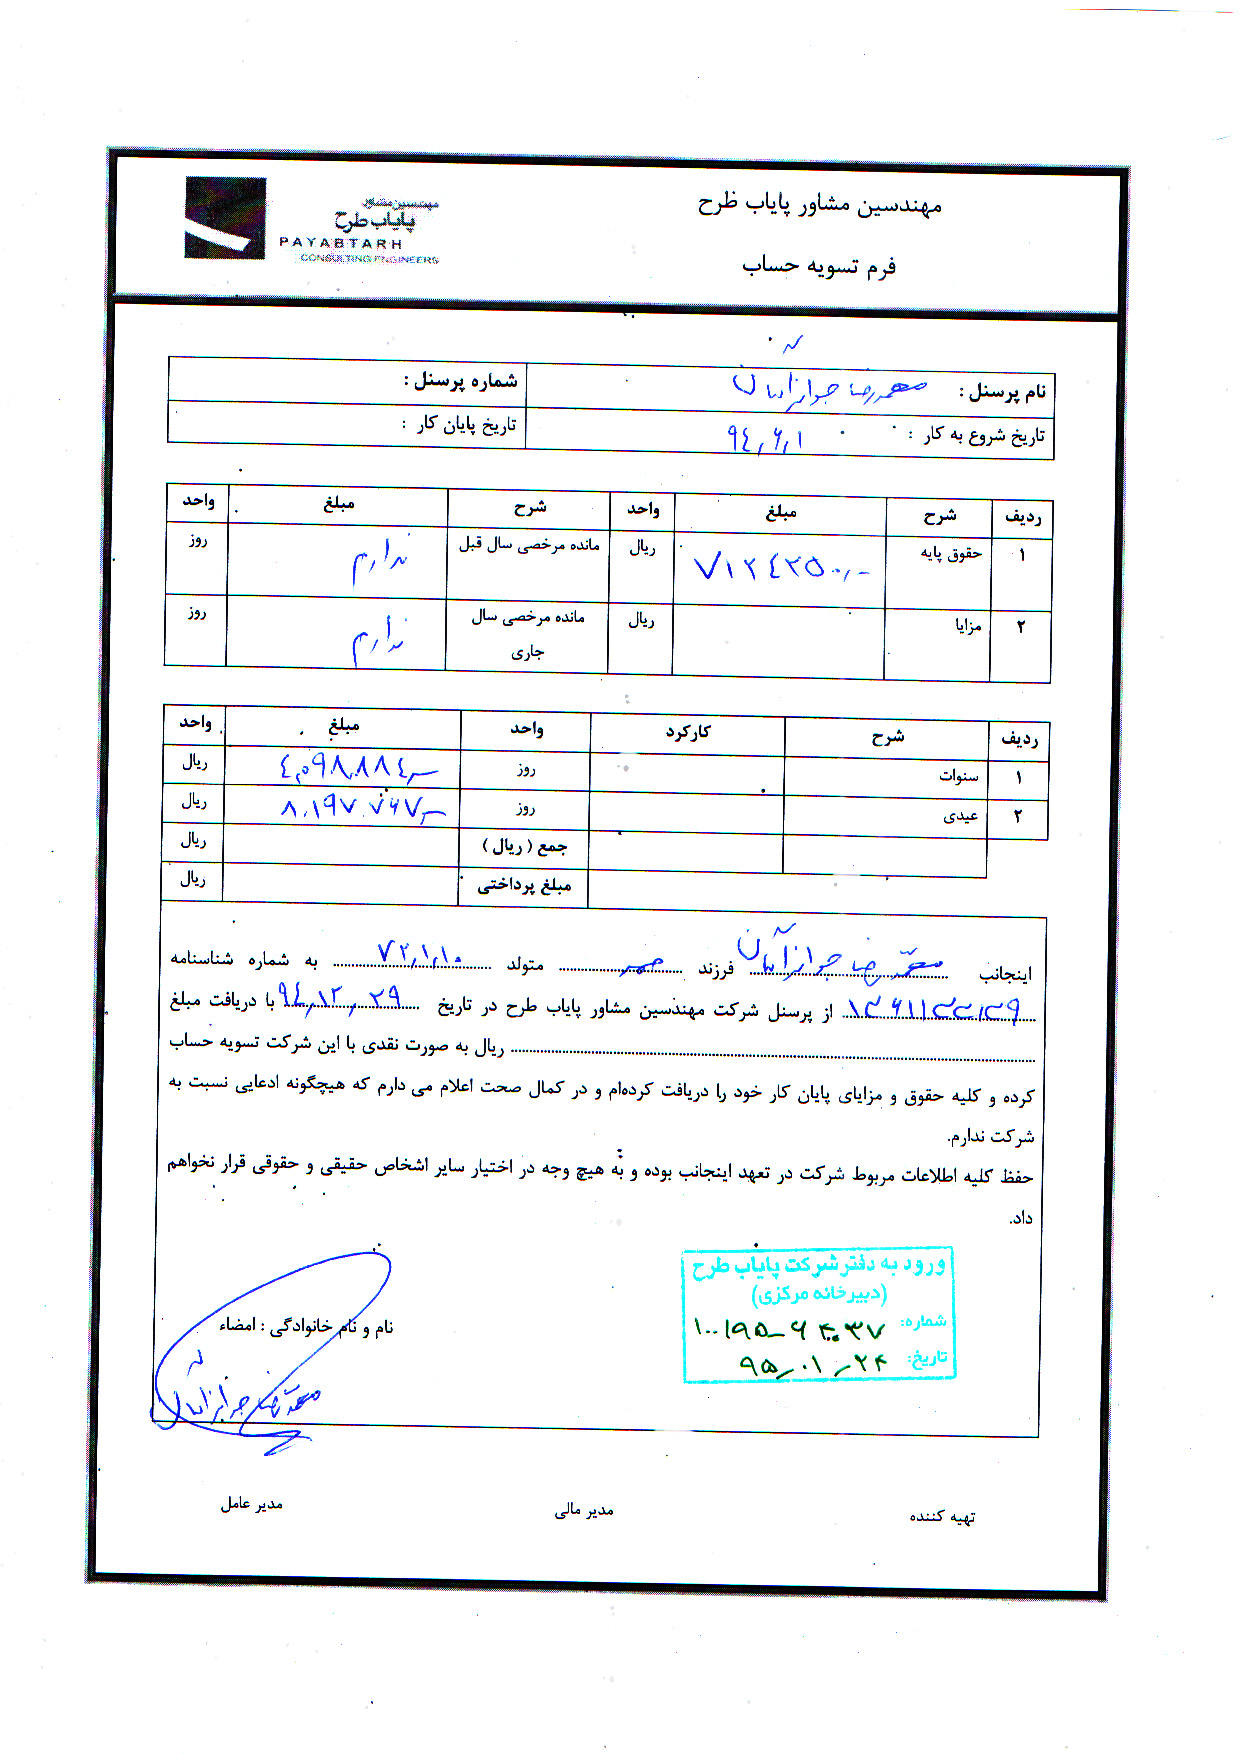 مهندسین مشاور پایاب طرح
فرم تسویه حساب
مهندسین مشاور
پایاب طرح
PAYABTARH
CONSULTING ENGINEERS
نام پرسنل : محمدرضا جوانرآبادیان شماره پرسنل :
تاریخ شروع به کار : ۹٤٫۶٫۱ تاریخ پایان کار :
ردیف شرح مبلغ واحد شرح مبلغ واحد
۱ حقوق پایه ۷۱۲٤۲۵۰٫- ریال مانده مرخصی سال قبل ندارم روز
۲ مزایا ریال مانده مرخصی سال جاری ندارم روز
ردیف شرح کارکرد واحد مبلغ واحد
۱ سنوات روز ٤٫۰۹۸٫۸۸٤٫- ریال
۲ عیدی روز ۸٫۱۹۷٫۷۶۷٫- ریال
جمع ( ریال ) ریال
مبلغ پرداختی ریال
اینجانب محمدرضا فرزند متولد ۷۲٫۱٫۱۰ به شماره شناسنامه
از پرسنل شرکت مهندسین مشاور پایاب طرح در تاریخ ۹٤٫۱۲٫۲۹ با دریافت مبلغ
ریال به صورت نقدی با این شرکت تسویه حساب
کرده و کلیه حقوق و مزایای پایان کار خود را دریافت کرده‌ام و در کمال صحت اعلام می دارم که هیچگونه ادعایی نسبت به
شرکت ندارم.
حفظ کلیه اطلاعات مربوط شرکت در تعهد اینجانب بوده و به هیچ وجه در اختیار سایر اشخاص حقیقی و حقوقی قرار نخواهم
داد.
ورود به دفتر شرکت پایاب طرح
(دبیرخانه مرکزی)
شماره: ۱۰۰۱۹۵-۶۴۰۳۷
تاریخ: ۹۵-۰۱-۲۴
نام و نام خانوادگی : امضاء
محمدرضا
تهیه کننده مدیر مالی مدیر عامل